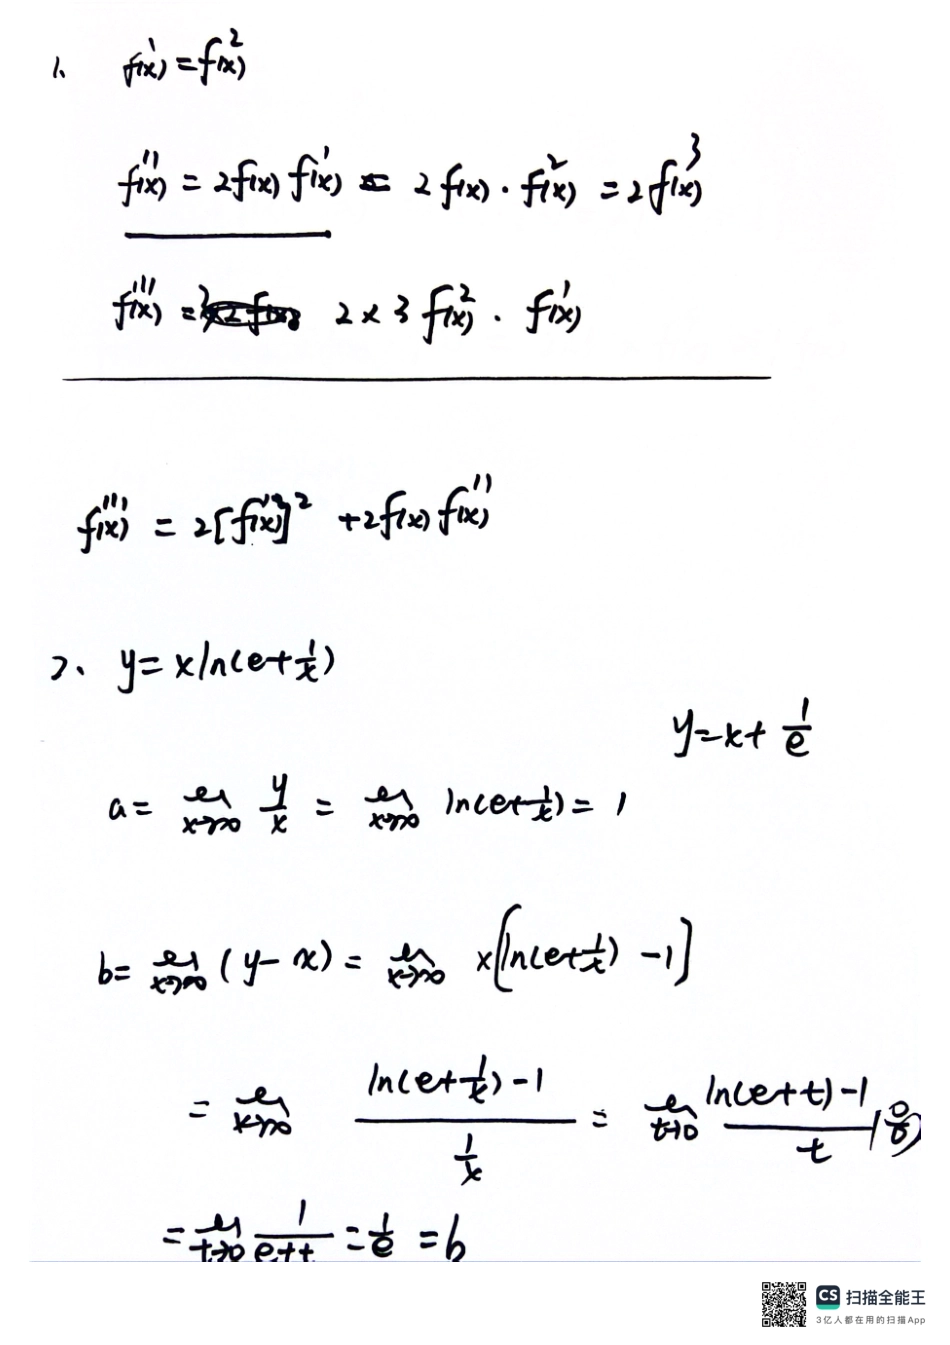 1、 f'(x) = f²(x)
f''(x) = 2f(x) f'(x) = 2 f(x) · f²(x) = 2 f³(x)
f'''(x) = 2 × 3 f²(x) · f'(x)
f'''(x) = 2[f'(x)]² + 2f(x) f''(x)
2、 y = x ln(e + 1/x)
y = x + 1/e
a = lim x→∞ y/x = lim x→∞ ln(e + 1/x) = 1
b = lim x→∞ (y − x) = lim x→∞ x[ln(e + 1/x) − 1]
= lim x→∞ (ln(e + 1/x) − 1)/(1/x) = lim t→0 (ln(e + t) − 1)/t (0/0)
= lim t→0 1/(e + t) = 1/e = b
CS 扫描全能王
3亿人都在用的扫描App